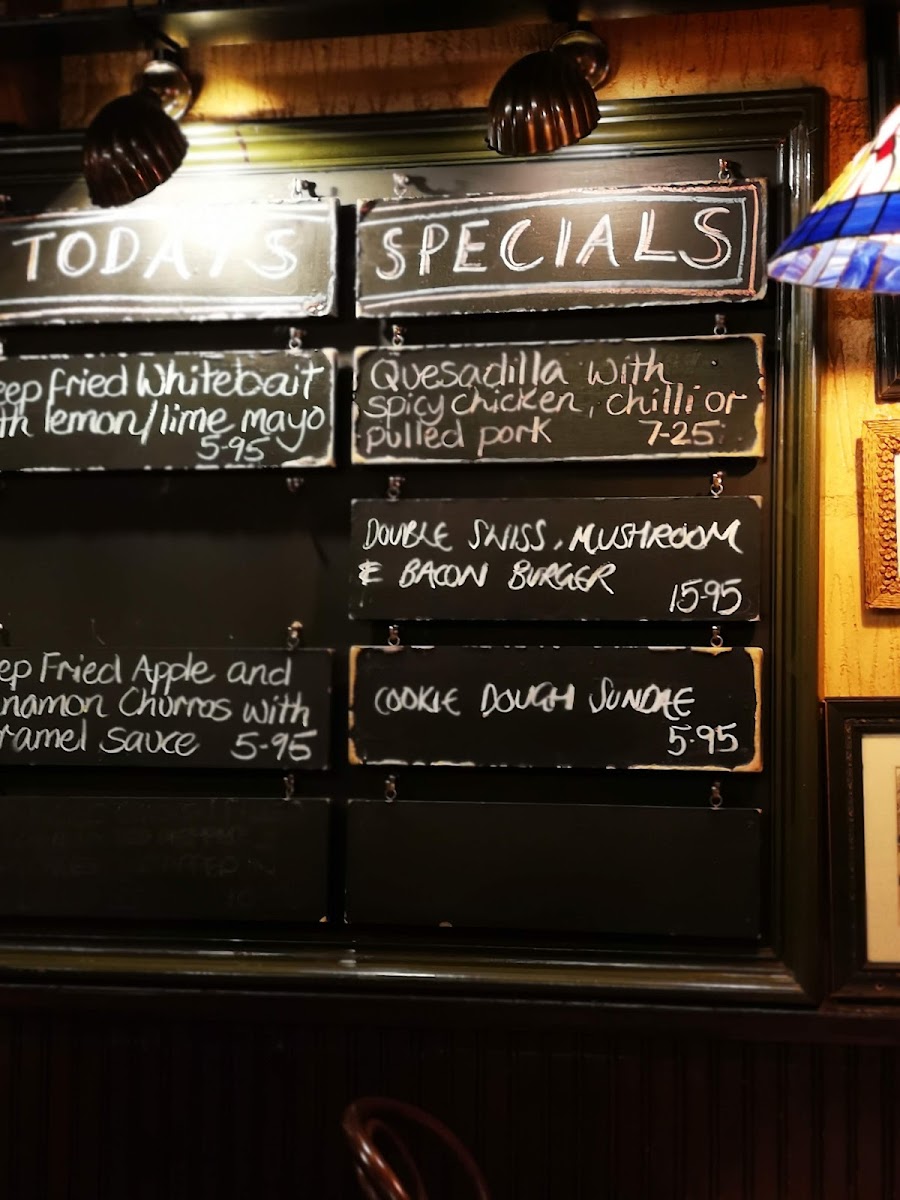 TODAYS
SPECIALS
eep fried Whitebait
th lemon/lime mayo
5-95
Quesadilla with
spicy chicken, chilli or
pulled pork 7-25
DOUBLE SWISS, MUSHROOM
& BACON BURGER
15-95
ep Fried Apple and
nnamon Churros with
ramel sauce 5-95
COOKIE DOUGH SUNDAE
5.95